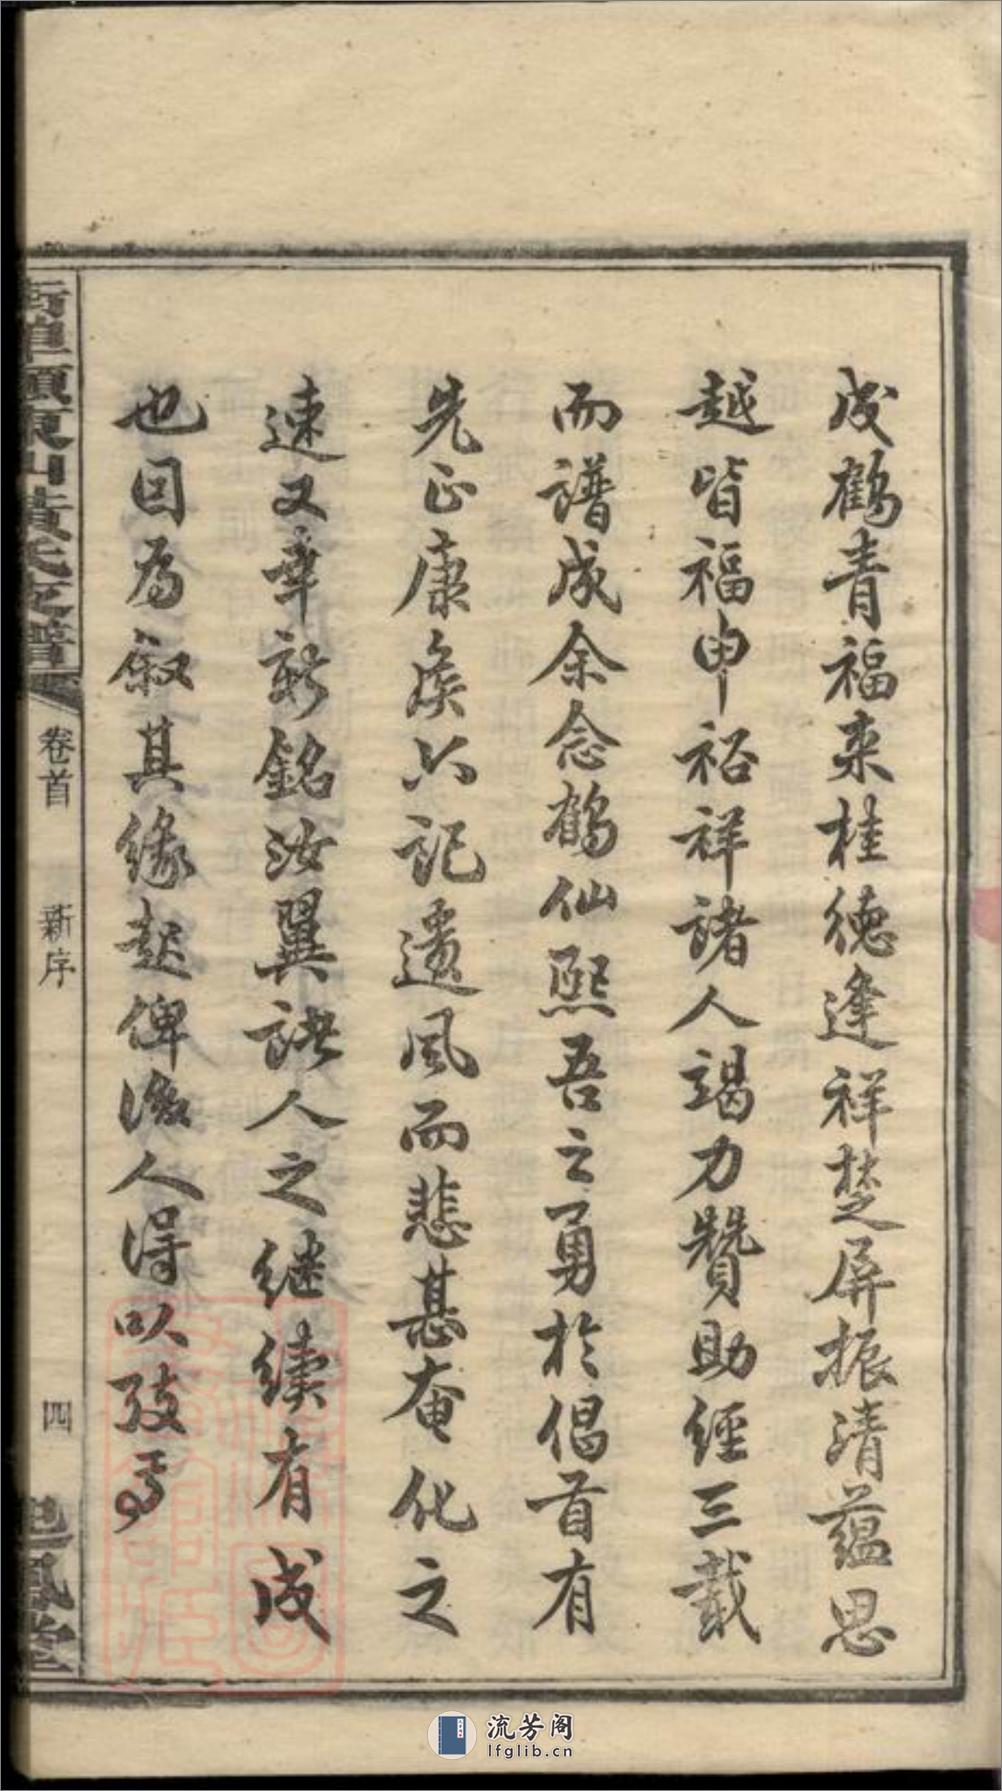 成鶴青福來桂德逢祥楚屏振清蘊思
越皆福申裕祥諸人竭力贊助經三載
而譜成余念鶴仙熙吾之勇於倡首有
先正康侯公記遺風而悲甚奄化之
速又幸新銘汝翼諸人之继續有成
也因為叙其緣起俾後人得以攷焉
東山黃氏支譜
卷首
新序
四
鳳堂
流芳阁
lfglib.cn